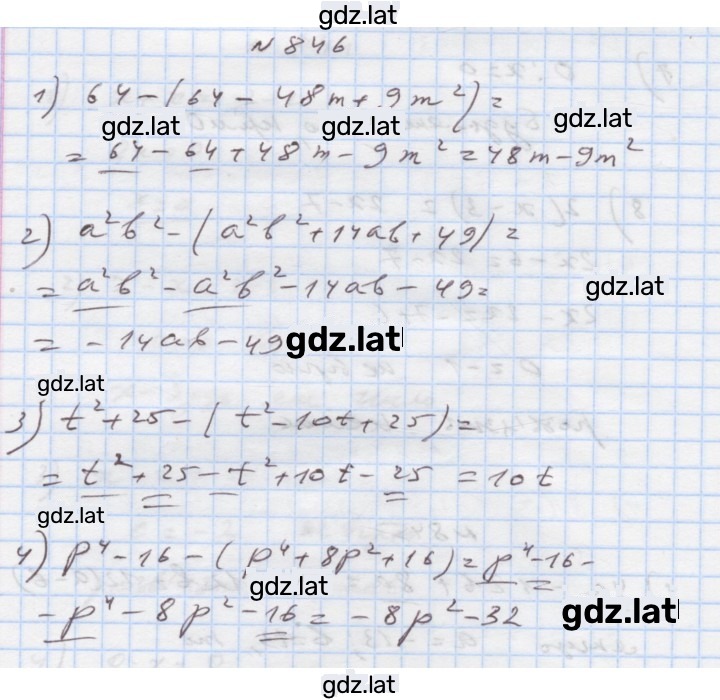 gdz.lat
N 846
1) 64-(64-48m+9m²)=
gdz.lat gdz.lat gdz.lat
= 64-64+48m-9m²=48m-9m²
2) a²b²-(a²b²+14ab+49)=
= a²b²-a²b²-14ab-49=
gdz.lat
= -14ab-49
gdz.lat
gdz.lat
3) t²+25-(t²-10t+25)=
= t²+25-t²+10t-25 =10t
gdz.lat
4) p⁴-16-(p⁴+8p²+16)=p⁴-16-
gdz.lat
-p⁴-8p²-16= -8p²-32
gdz.lat
gdz.lat